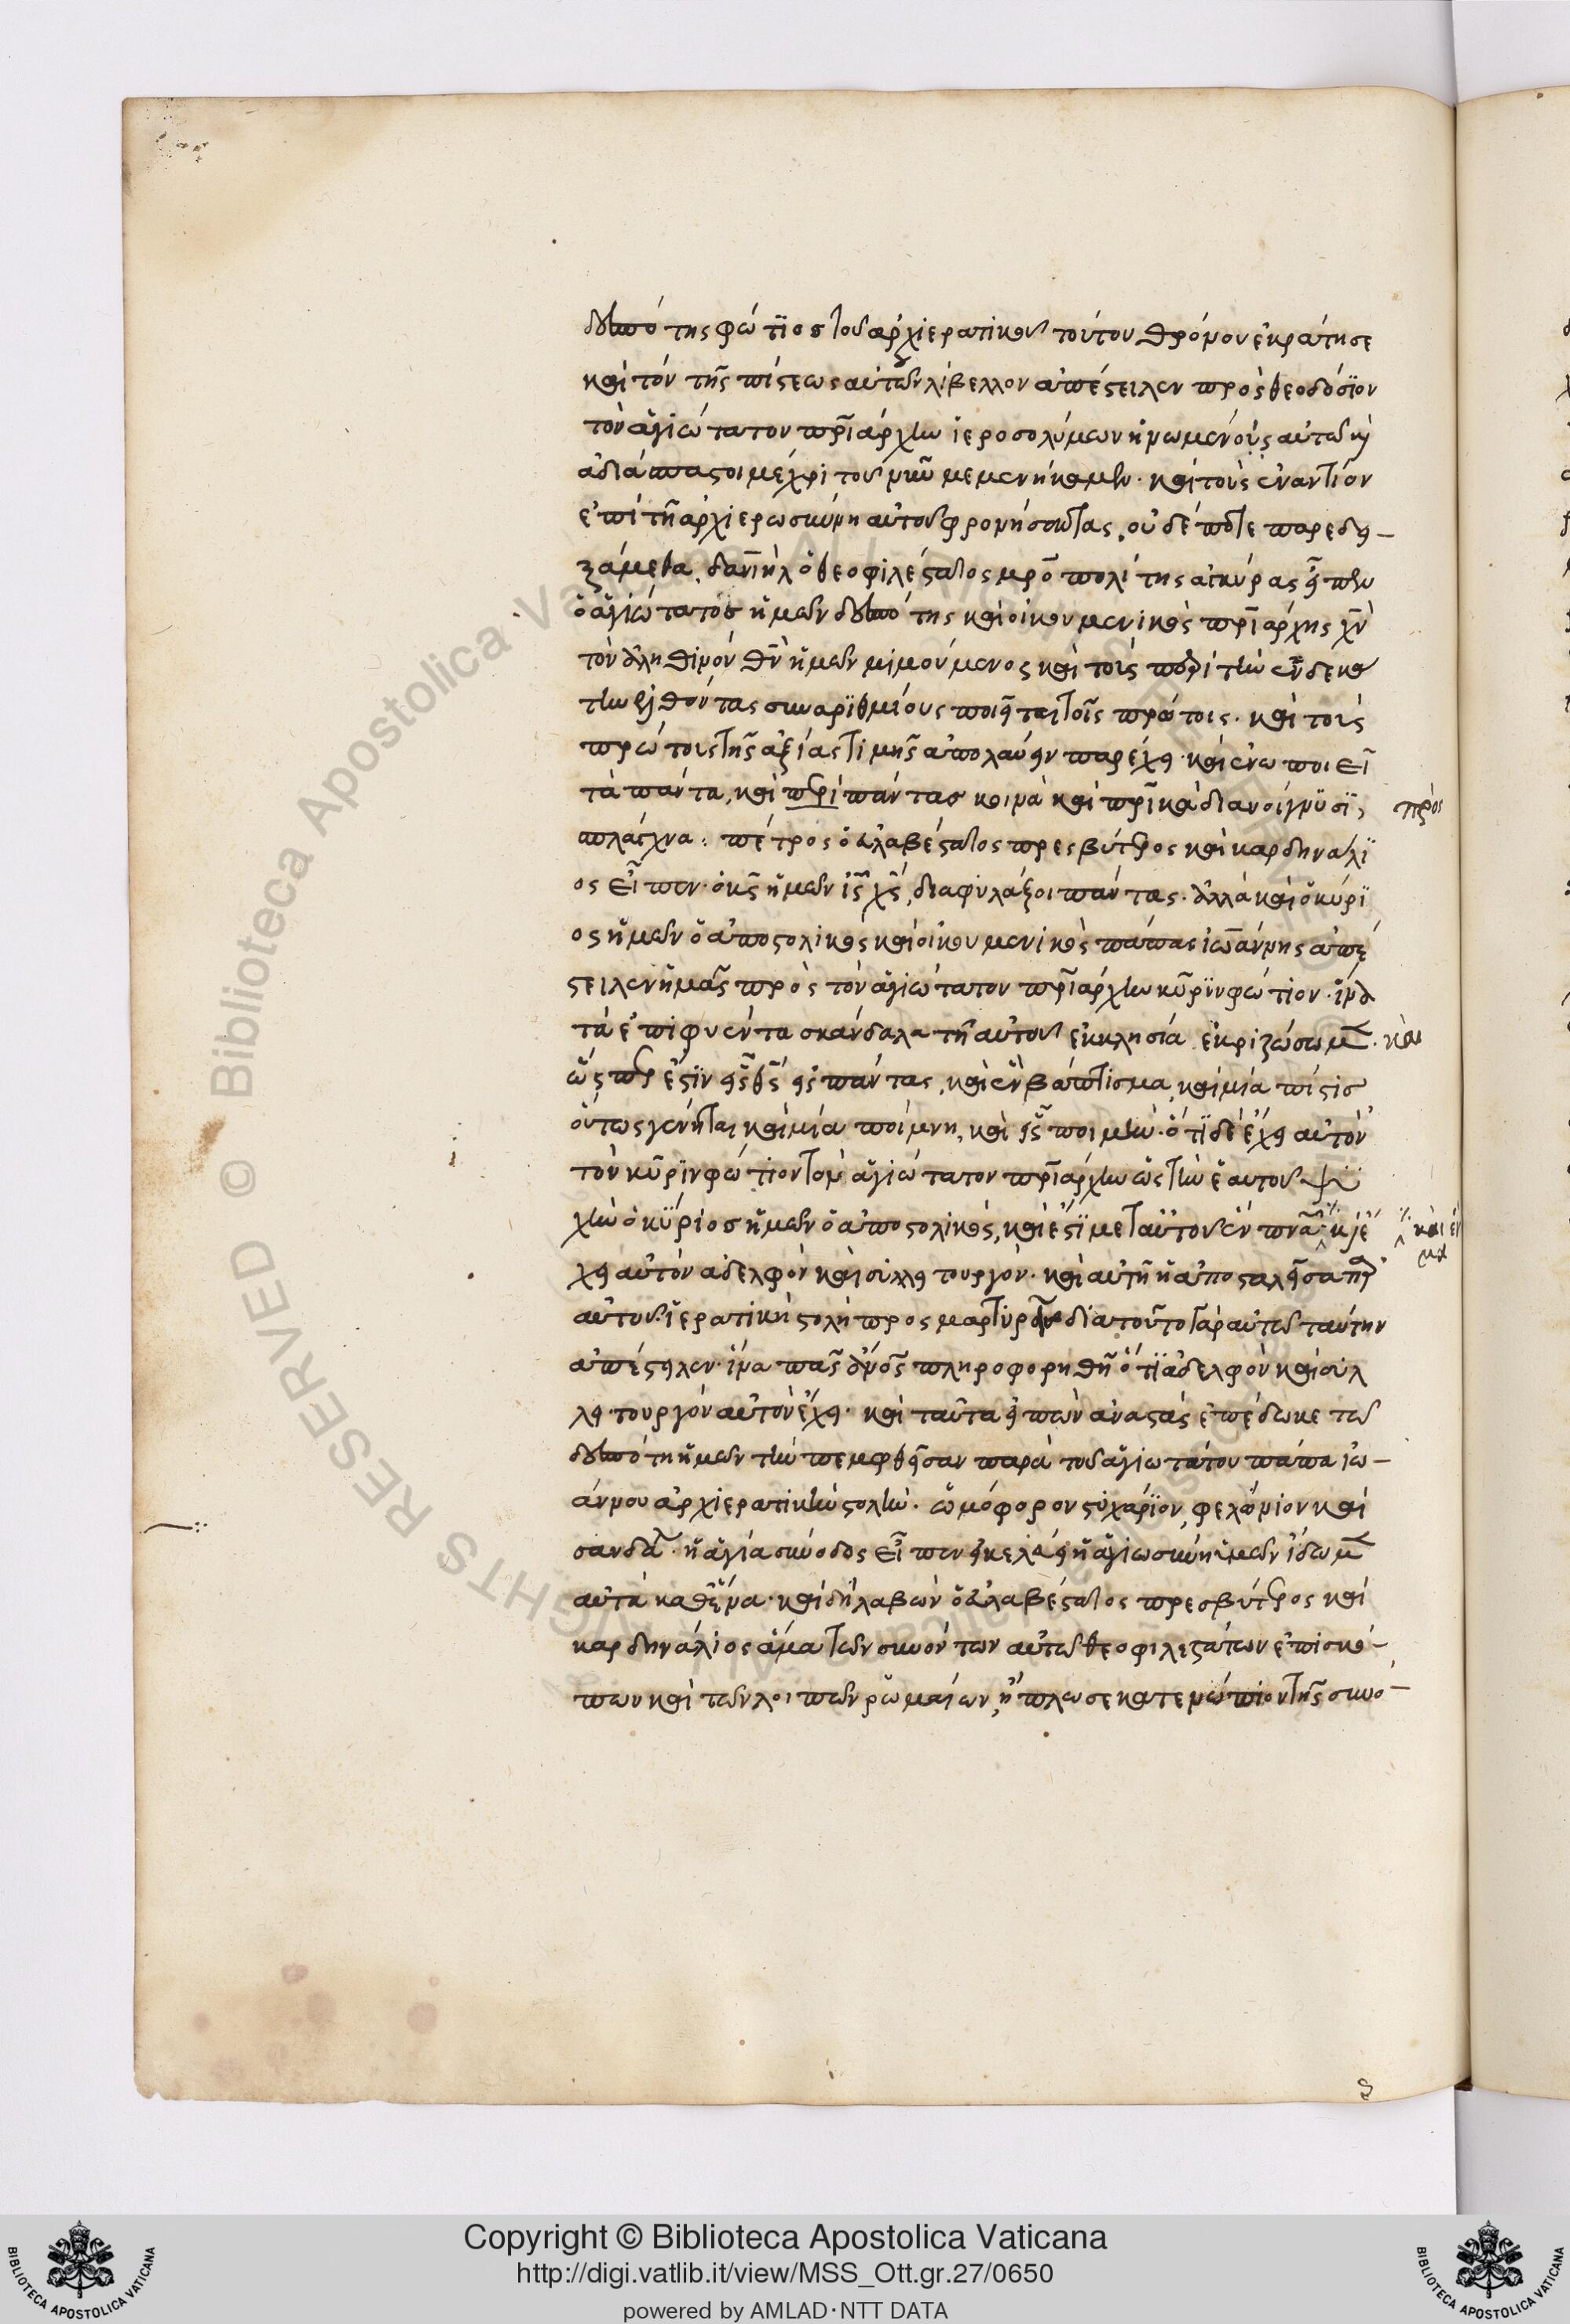 δεσπότης φώτϊος τοῦ ἀρχιερατικοῦ τούτου θρόνου ἐκράτησε
καὶ τὸν τῆς πίστεως αὐτοῦ λίβελλον ἀπέστειλεν πρὸς θεοδόσϊον
τὸν ἁγιώτατον πρϊάρχην ἱεροσολύμων ἡνωμένους αὐτῶ κỳ
ἀδιάσπαστοι μέχρι τοῦ νῦν μεμενήκαμεν. καὶ τοὺς ἐναντίον
ἐπὶ τῆ ἀρχιερωσύνη αὐτοῦ φρονήσαντας, οὐδέποτε παρεδε-
ξάμεθα, δανιὴλ ὁ θεοφιλέστατος μρο πολίτης ἀγκύρας εἶπεν
ὁ ἁγιώτατος ἡμῶν δεσπότης καὶ οἰκουμενικὸς πρϊάρχης χν
τὸν ἀληθινὸν θν ἡμῶν μιμούμενος καὶ τοὺς περὶ τὴν ἑνδεκά
την ἐλθόντας συναρϊθμίους ποιεῖται τοῖς πρώτοις. καὶ τοὺς
πρώτους τῆς ἀξίας τιμῆς ἀπολαύειν παρέχει. καὶ ἑνωποιεῖ
τὰ πάντα, καὶ περὶ πάντας κοινὰ καὶ πρικὰ διανοίγνϋσϊ,
πρὸς
σπλάγχνα: πέτρος ὁ εὐλαβέστατος πρεσβύτερος καὶ καρδηνάλϊ
ος εἶπεν. ὁ κς ἡμῶν ις χς, διαφυλάξοι πάντας. ἀλλὰ καὶ ὁ κύρϊ
ος ἡμῶν ὁ ἀποστολικὸς καὶ οἰκουμενικὸς πάπας ἰωάννης ἀπέ
στειλεν ἡμᾶς πρὸς τὸν ἁγιώτατον πρϊάρχην κῦρϊν φώτιον. ἵνα
τὰ ἐπιφυέντα σκάνδαλα τῆ αὐτοῦ ἐκκλησία ἐκριζώσωμ. καὶ
ὥσπερ ἐστὶν εἷς θς εἰς πάντας, καὶ ἓν βάπτισμα, καὶ μία πίστις
οὕτως γένηται καὶ μία ποίμνη, καὶ εἷς ποιμήν. ὅτϊ δὲ ἔχει αὐτὸν
τὸν κῦρϊν φώτιον τὸν ἁγιώτατον πρϊάρχην ὡς τὴν ἑαυτοῦ ψυ
χὴν ὁ κύριος ἡμῶν ὁ ἀποστολικός, καὶ ἔστϊ μετ αὐτοῦ ἓν πνα κỳ ἔ
καὶ ἓν
χει αὐτὸν ἀδελφὸν καὶ συλλειτουργόν. καὶ αὐτὴ ἡ ἀποσταλεῖσα πρ
αὐτοῦ ἱερατικὴ στολὴ προσμαρτυρεῖ διατοῦτο γὰρ αὐτῶ ταύτην
ἀπέστειλεν. ἵνα πᾶς ἀνος πληροφορηθῆ ὅτϊ ἀδελφὸν καὶ συλ
λειτουργὸν αὐτὸν ἔχει. καὶ ταῦτα εἰπὼν ἀναστὰς ἐπέδωκε τῶ
δεσπότη ἡμῶν τὴν πεμφθεῖσαν παρὰ τοῦ ἁγιωτάτου πάπα ἰω-
άννου ἀρχιερατικὴν στολήν. ὠμόφορον στιχάρϊον, φελώνιον καὶ
σανδα. ἡ ἁγία σύνοδος εἶπεν εἰ κελεύει ἡ ἁγιωσύνη ἡμῶν ἴδωμ
αὐτὰ καθ ἕνα. καὶ δὴ λαβὼν ὁ εὐλαβέστατος πρεσβύτερος καὶ
καρδηνάλιος ἅμα τῶν συνόντων αὐτῶ θεοφιλεστάτων ἐπισκό-
πων καὶ τῶν λοιπῶν ῥωμαίων, ἥπλωσε κατενώπιον τῆς συνό-
Copyright © Biblioteca Apostolica Vaticana
http://digi.vatlib.it/view/MSS_Ott.gr.27/0650
powered by AMLAD·NTT DATA